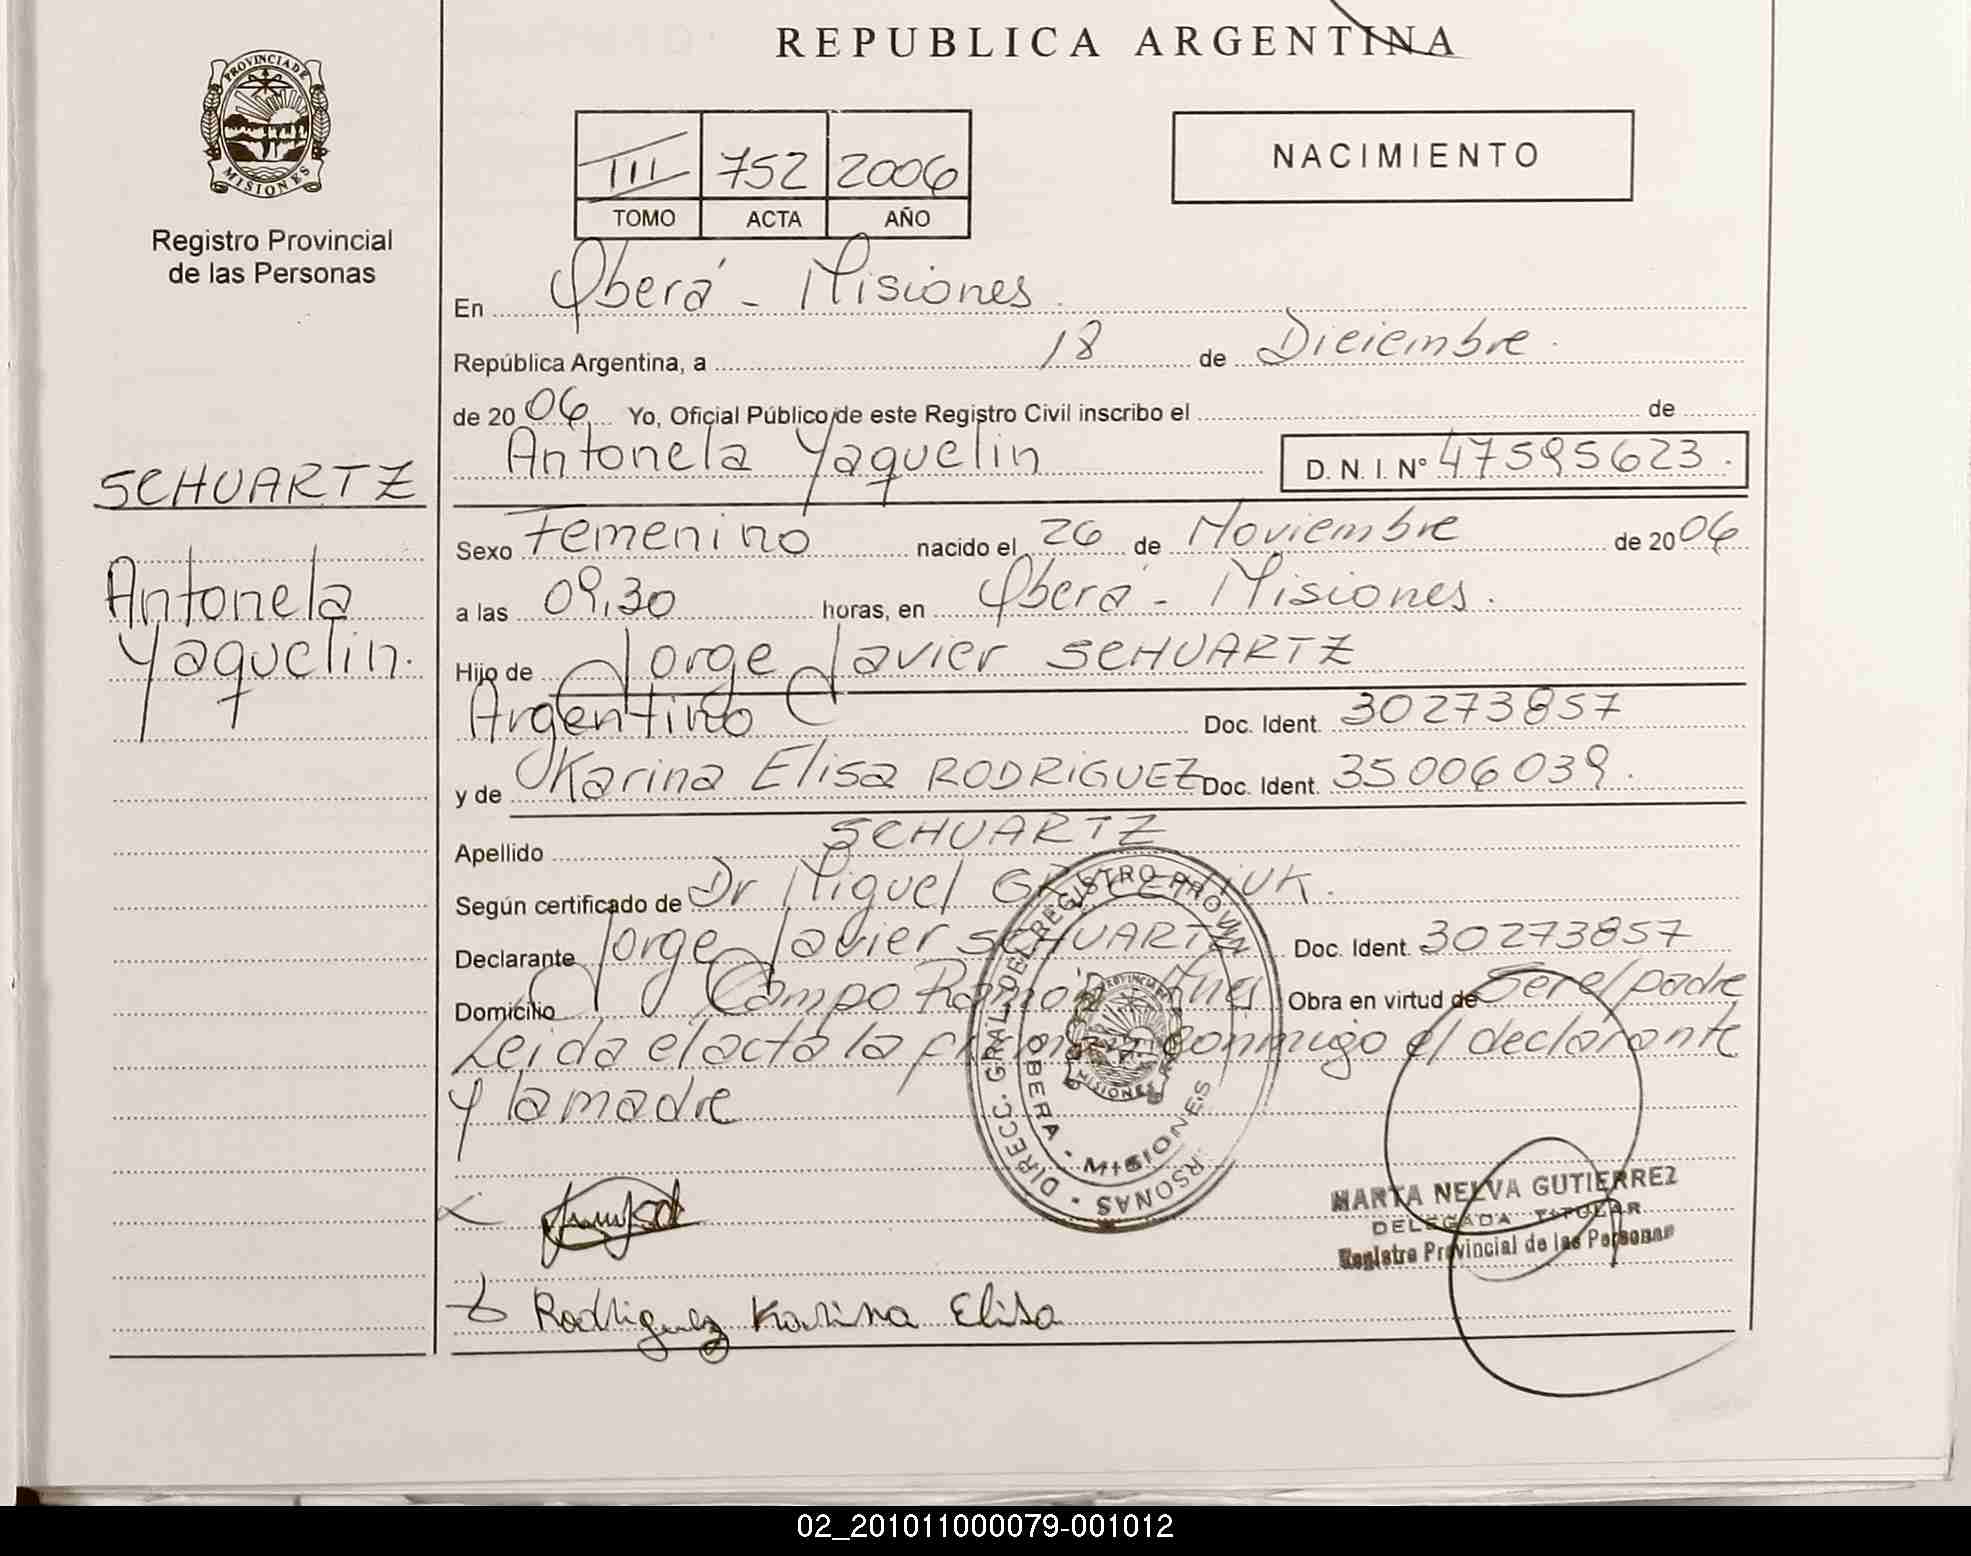 REPUBLICA ARGENTINA
PROVINCIA DE
MISIONES
Registro Provincial
de las Personas
III 752 2006
TOMO ACTA AÑO
NACIMIENTO
En Oberá - Misiones
República Argentina, a 18 de Diciembre
de 2006 Yo, Oficial Público de este Registro Civil inscribo el de
Antonela Yaquelin D. N. I. N° 47595623
SCHUARTZ
Antonela
Yaquelin.
Sexo Femenino nacido el 26 de Noviembre de 2006
a las 09,30 horas, en Oberá - Misiones.
Hijo de Jorge Javier SCHUARTZ
Argentino Doc. Ident. 30273857
y de Karina Elisa RODRIGUEZ Doc. Ident. 35006039.
Apellido SCHUARTZ
Según certificado de Dr Miguel
Declarante Jorge Javier SCHUARTZ Doc. Ident. 30273857
Domicilio Campo Ramón Mnes Obra en virtud de Ser el padre
Leida el acta la firman conmigo el declarante
y la madre
DIRECC. GRAL. DEL REGISTRO PROVIN
RSONAS
OBERA - MISIONES
PROVINCIA DE
MISIONES
MARTA NELVA GUTIERREZ
DELEGADA TITULAR
Registro Provincial de las Personas
Rodriguez Karina Elisa
02_201011000079-001012